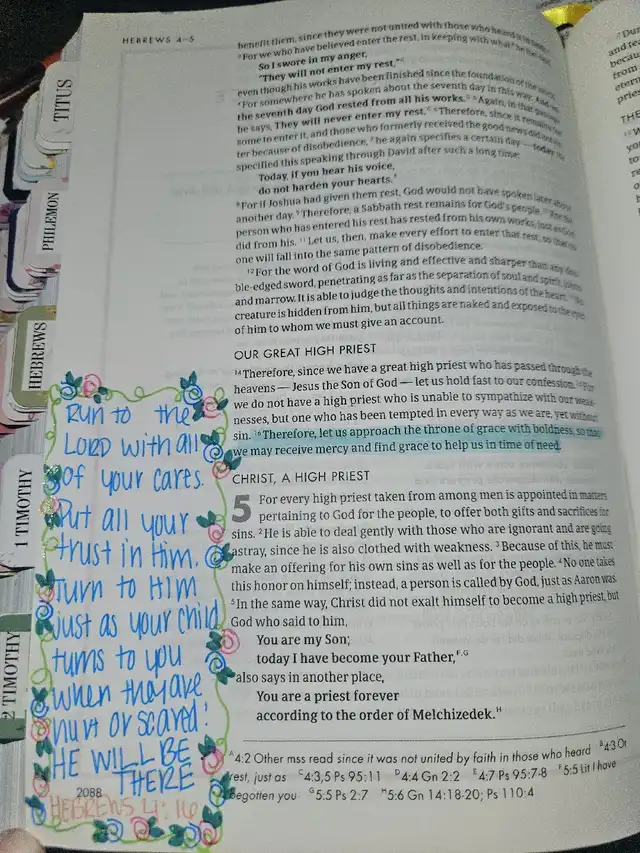 HEBREWS 4–5
TITUS
PHILEMON
HEBREWS
1 TIMOTHY
2 TIMOTHY
benefit them, since they were not united with those who heard it in
³For we who have believed enter the rest, in keeping with what he has said,
So I swore in my anger,
"They will not enter my rest,"
even though his works have been finished since the foundation of the
⁴For somewhere he has spoken about the seventh day in this way: And on
the seventh day God rested from all his works. ⁵Again, in that passage
he says, They will never enter my rest. ⁶Therefore, since it remains for
some to enter it, and those who formerly received the good news did not en-
ter because of disobedience, ⁷he again specifies a certain day — today. He
specified this speaking through David after such a long time:
Today, if you hear his voice,
do not harden your hearts.
⁸For if Joshua had given them rest, God would not have spoken later about
another day. ⁹Therefore, a Sabbath rest remains for God's people. ¹⁰For the
person who has entered his rest has rested from his own works, just as God
did from his. ¹¹Let us, then, make every effort to enter that rest, so that no
one will fall into the same pattern of disobedience.
¹²For the word of God is living and effective and sharper than any dou-
ble-edged sword, penetrating as far as the separation of soul and spirit, joints
and marrow. It is able to judge the thoughts and intentions of the heart. ¹³No
creature is hidden from him, but all things are naked and exposed to the eyes
of him to whom we must give an account.
OUR GREAT HIGH PRIEST
¹⁴Therefore, since we have a great high priest who has passed through the
heavens — Jesus the Son of God — let us hold fast to our confession. ¹⁵For
we do not have a high priest who is unable to sympathize with our weak-
nesses, but one who has been tempted in every way as we are, yet without
sin. ¹⁶Therefore, let us approach the throne of grace with boldness, so that
we may receive mercy and find grace to help us in time of need.
CHRIST, A HIGH PRIEST
5 For every high priest taken from among men is appointed in matters
pertaining to God for the people, to offer both gifts and sacrifices for
sins. ²He is able to deal gently with those who are ignorant and are going
astray, since he is also clothed with weakness. ³Because of this, he must
make an offering for his own sins as well as for the people. ⁴No one takes
this honor on himself; instead, a person is called by God, just as Aaron was.
⁵In the same way, Christ did not exalt himself to become a high priest, but
God who said to him,
You are my Son;
today I have become your Father,ᶠ·ᴳ
also says in another place,
You are a priest forever
according to the order of Melchizedek.ᴴ
ᴬ4:2 Other mss read since it was not united by faith in those who heard ᴮ4:3 Or
rest, just as ᶜ4:3,5 Ps 95:11 ᴰ4:4 Gn 2:2 ᴱ4:7 Ps 95:7-8 ᶠ5:5 Lit I have
begotten you ᴳ5:5 Ps 2:7 ᴴ5:6 Gn 14:18-20; Ps 110:4
Run to the
LORD with all
of your cares.
Put all your
trust in Him.
Turn to HIM
just as your child
turns to you
when they are
hurt or scared!
HE WILL BE
THERE
2088
HEBREWS 4:16